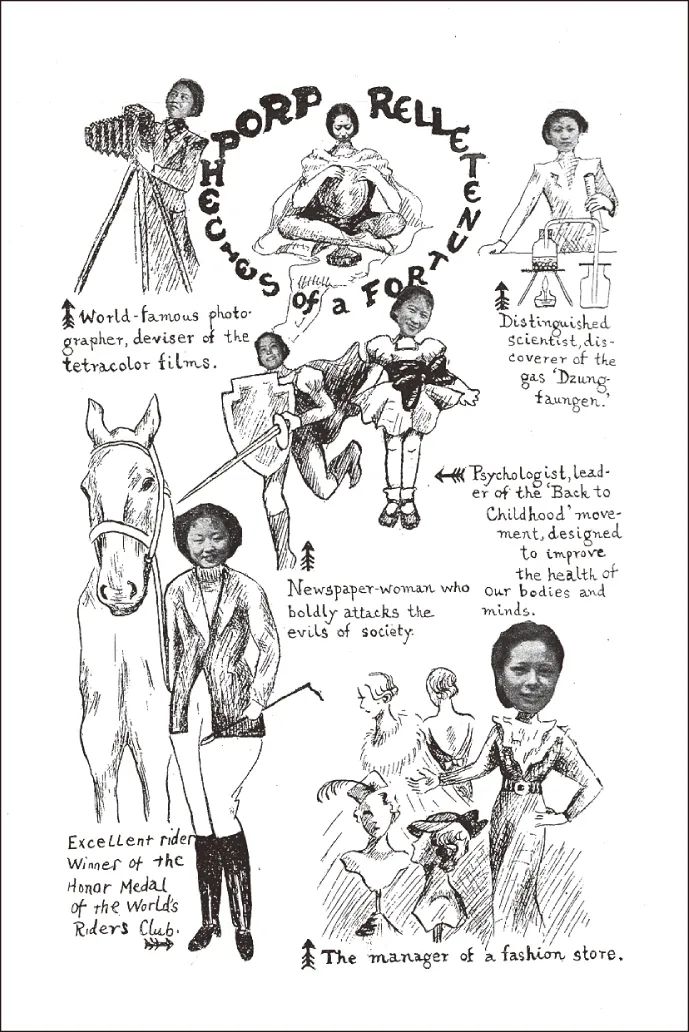 PROPHECIES of a FORTUNETELLER
World-famous photo-
grapher, deviser of the
tetracolor films.
Distinguished
scientist, dis-
coverer of the
gas 'Dzung-
faungen.'
Psychologist, lead-
er of the 'Back to
Childhood' move-
ment, designed
to improve
the health of
our bodies and
minds.
Newspaper-woman who
boldly attacks the
evils of society.
Excellent rider
Winner of the
Honor Medal
of the World's
Riders Club.
The manager of a fashion store.